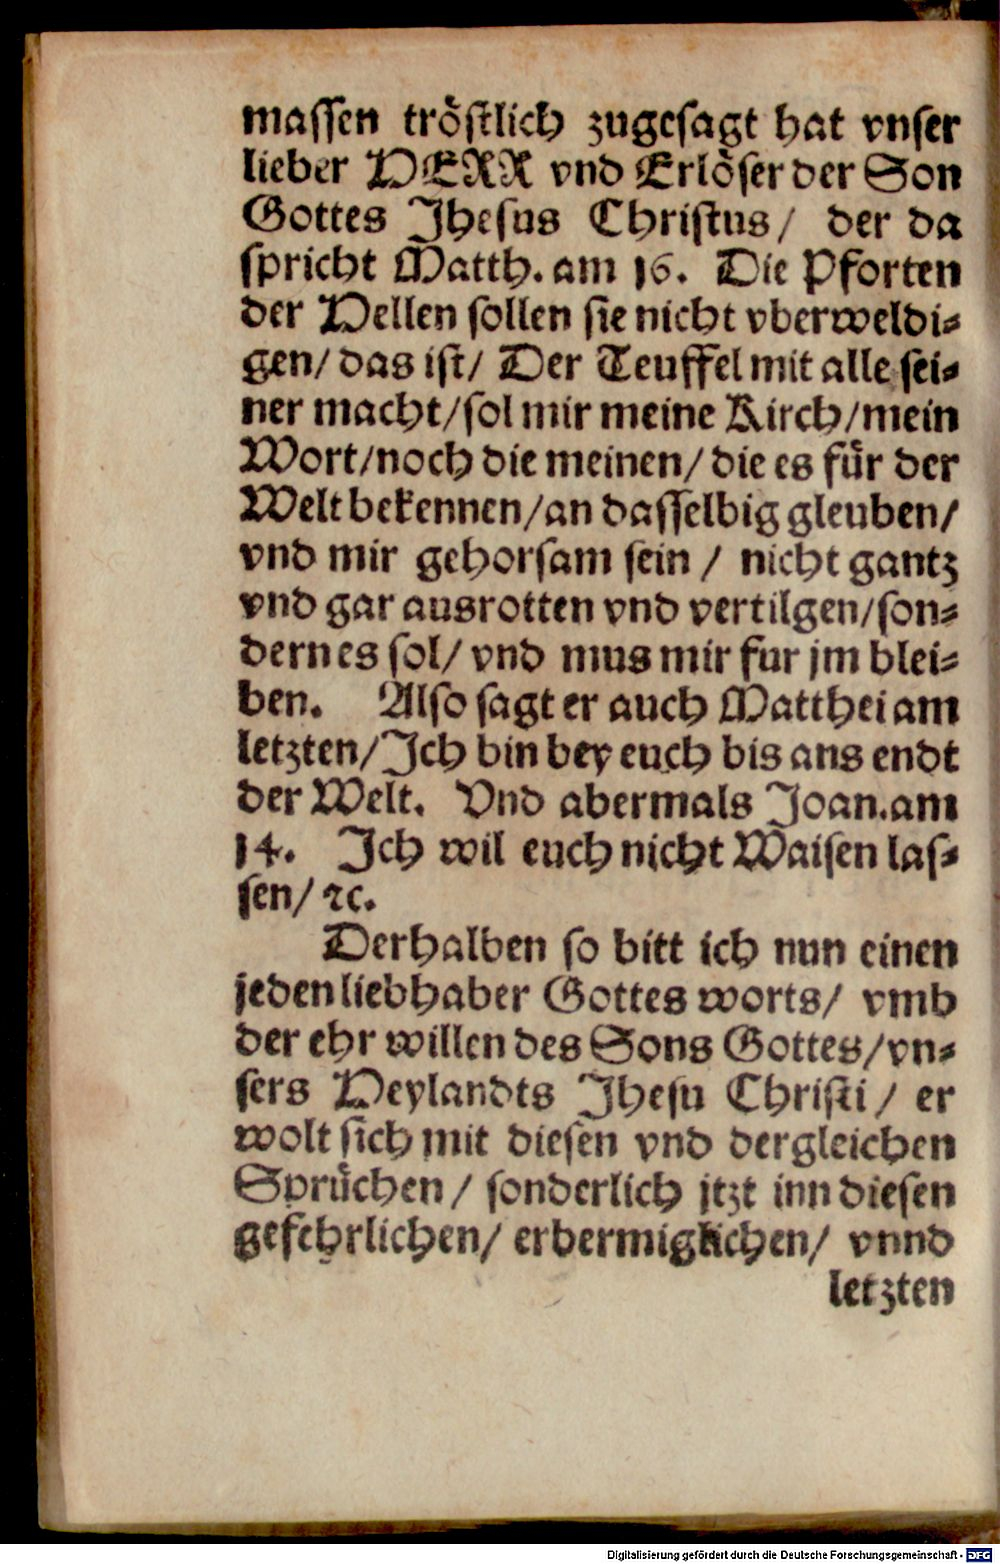 maſſen troͤſtlich zugeſagt hat vnſer
lieber HERR vnd Erloͤſer der Son
Gottes Jheſus Chriſtus/ der da
ſpricht Matth. am 16. Die Pforten
der Hellen ſollen ſie nicht vberweldi⸗
gen/ das iſt/ Der Teuffel mit alle ſei⸗
ner macht/ſol mir meine Kirch/mein
Wort/noch die meinen/ die es fuͤr der
Welt bekennen/an daſſelbig gleuben/
vnd mir gehorſam ſein / nicht gantz
vnd gar ausrotten vnd vertilgen/ſon⸗
dern es ſol/ vnd mus mir fur jm blei⸗
ben. Alſo ſagt er auch Matthei am
letzten/Jch bin bey euch bis ans endt
der Welt. Vnd abermals Joan.am
14. Jch wil euch nicht Waiſen laſ⸗
ſen/ ꝛc.
Derhalben ſo bitt ich nun einen
jeden liebhaber Gottes worts/ vmb
der ehr willen des Sons Gottes/vn⸗
ſers Heylandts Jheſu Chriſti/ er
wolt ſich mit dieſen vnd dergleichen
Spruͤchen/ ſonderlich jtzt inn dieſen
gefehrlichen/ erbermiglichen/ vnnd
letzten
Digitalisierung gefördert durch die Deutsche Forschungsgemeinschaft - DFG